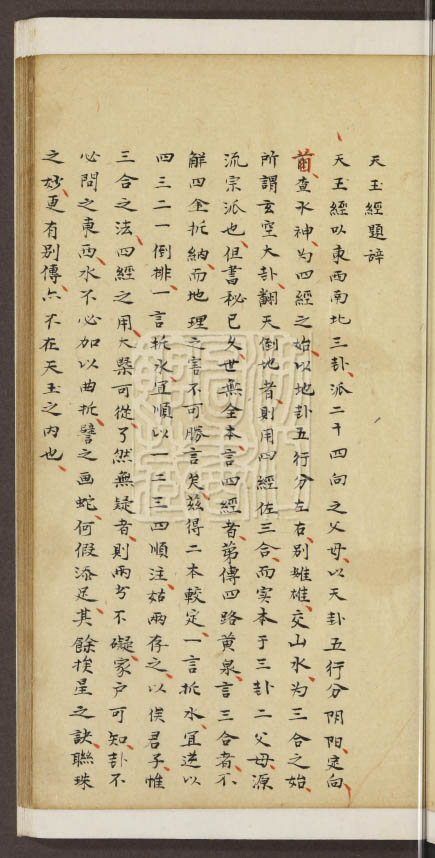 天玉經題辭
天玉經以東西南北三卦派二十四向之父母以天卦五行分陰陽定向
首查水神為四經之始以地卦五行分左右別雌雄交山水為三合之始
所謂玄空大卦翻天倒地者則用四經佐三合而实本于三卦二父母源
流宗派也但書秘已久世無全本言四經者苐傳四路黄泉言三合者不
觧四金折納而地理之害不可勝言矣茲得二本較定一言折水宜逆以
四三二一倒排一言折水宜順以一二三四順注姑兩存之以俟君子惟
三合之法四經之用大槩可從了然無疑者則兩者不礙家户可知卦不
必問之東西水不必加以曲折譬之画蛇何假添足其餘挨星之訣聯珠
之妙更有别傳亦不在天玉之内也